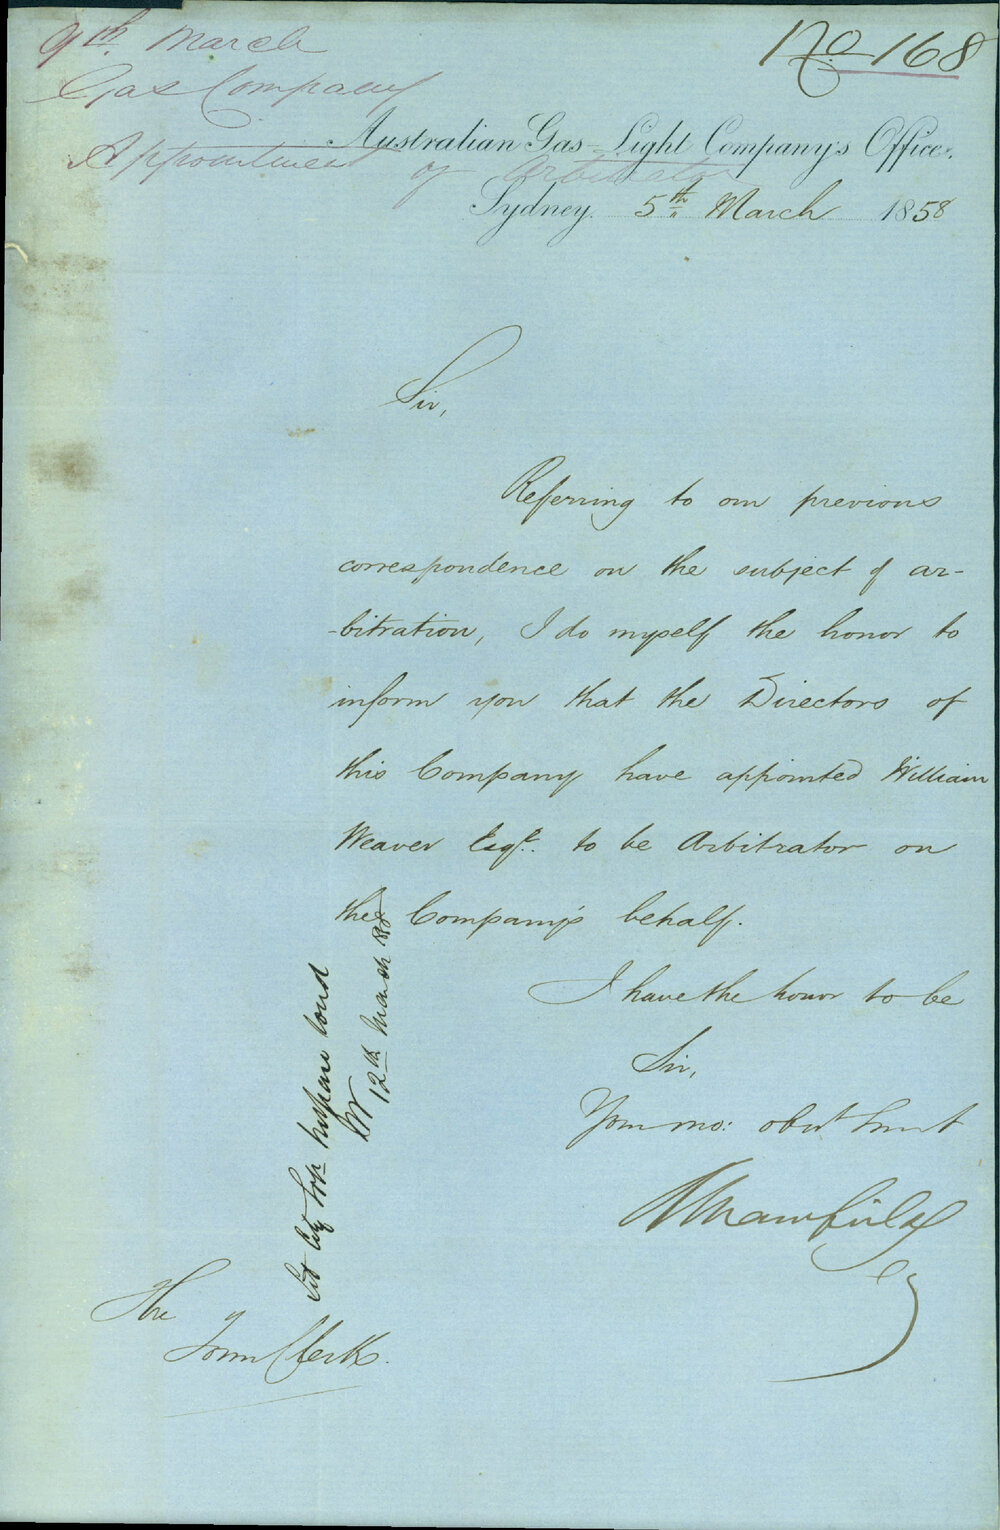 9th March
No 168
Gas Company
Appointment of Arbitrator
Australian Gas-Light Company's Office.
Sydney. 5th March 1858
Sir,
Referring to our previous
correspondence on the subject of ar-
-bitration, I do myself the honor to
inform you that the Directors of
this Company have appointed William
Weaver Esqre. to be Arbitrator on
the Company's behalf.
I have the honor to be
Sir,
Your mo: obdt Servt
The
Town Clerk.
12th March 58